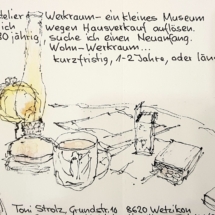 telier Werkraum - ein kleines Museum
ich wegen Hausverkauf auflösen.
30 jährig, suche ich einen Neuanfang.
Wohn-Werkraum...
kurzfristig, 1-2 Jahre, oder län
Toni Strolz, Grundstr. 10 8620 Wetzikon